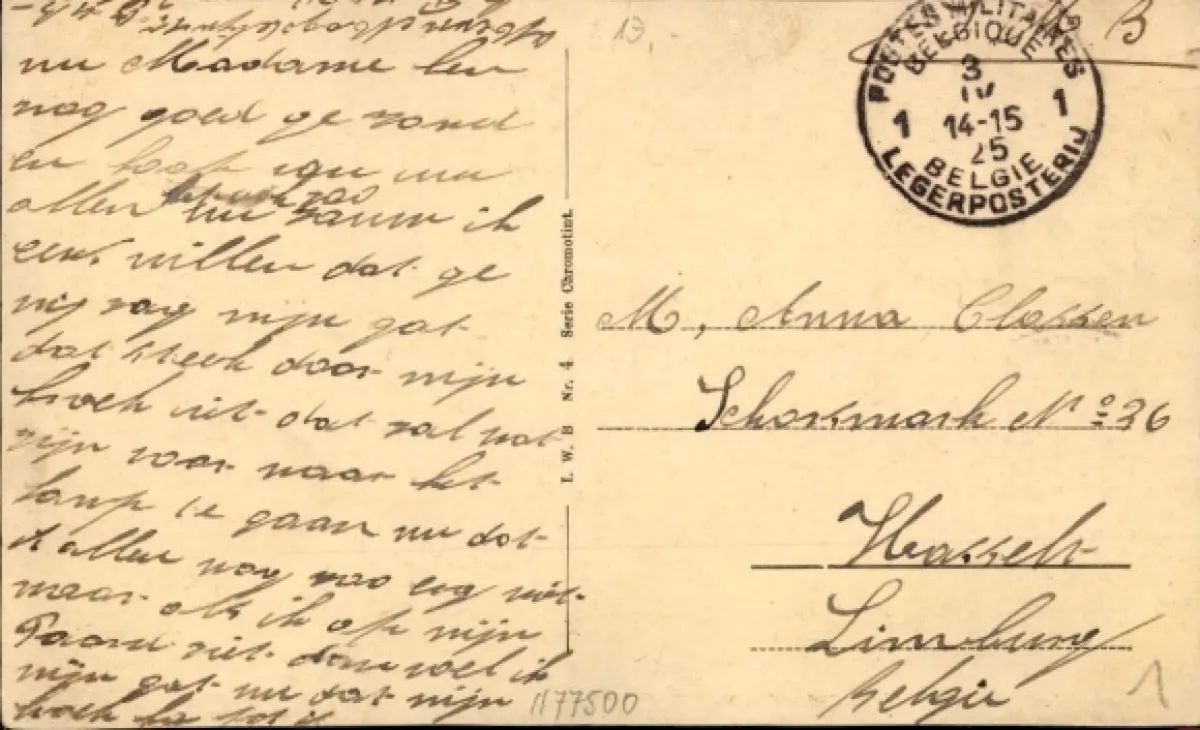 nu Madame ben
nog goed ge zond
en hoop van uw
allen het ook zoo
nu zauw ik
eens willen dat ge
mij zag mijn gat
dat steek door mijn
broek uit dat zal wat
zijn voor naar het
kamp te gaan nu dat
is allen nog zoo erg niet
maar als ik op mijn
Paard zit dan voel ik
mijn gat nu dat mijn
broek
I. W. B Nr. 4 Serie Chromotint.
13,-
S.M. B
POSTES MILITAIRES
BELGIQUE
3
IV
1 14-15 1
25
BELGIE
LEGERPOSTERIJ
M, Anna Clossen
Schorsmark No 36
Hasselt
Limburg
Belgie
1177500
1